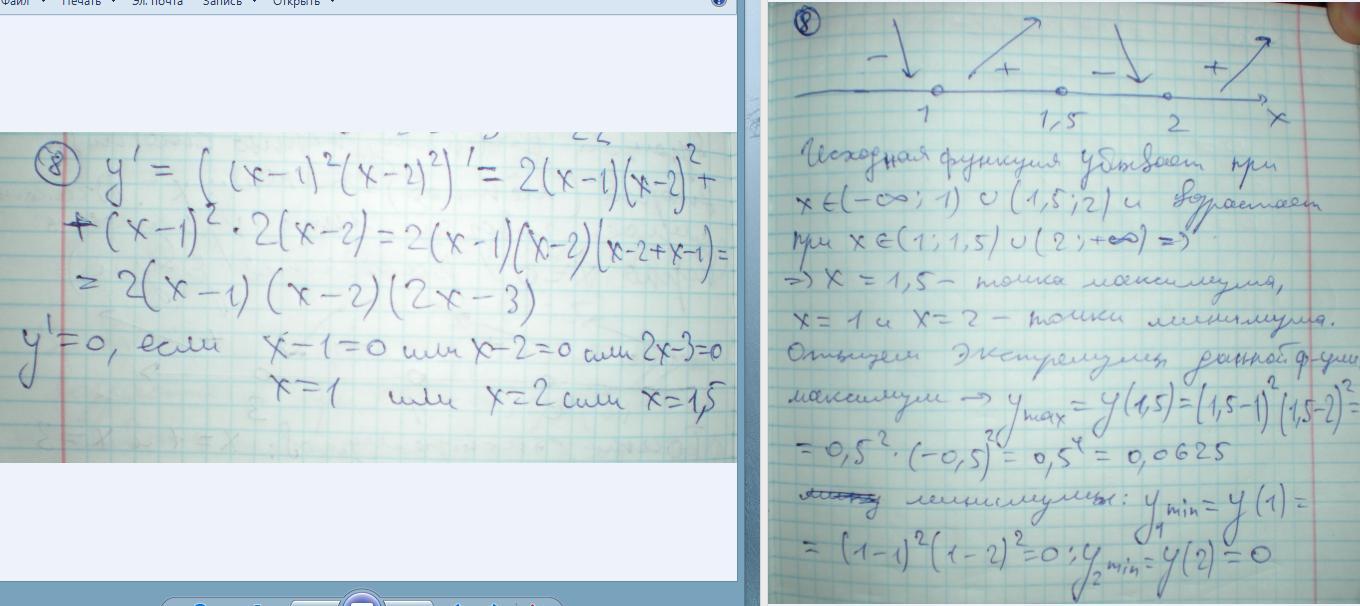 Файл Печать Эл. почта Запись Открыть
8 y' = ((x-1)²(x-2)²)' = 2(x-1)(x-2)² +
+ (x-1)² · 2(x-2) = 2(x-1)(x-2)(x-2+x-1) =
= 2(x-1)(x-2)(2x-3)
y'=0, если x-1=0 или x-2=0 или 2x-3=0
x=1 или x=2 или x=1,5
8
- + - +
1 1,5 2 x
Исходная функция убывает при
x∈(-∞; 1) ∪ (1,5; 2) и возрастает
при x∈(1; 1,5) ∪ (2; +∞) =>
=> x = 1,5 - точка максимума,
x=1 и x=2 - точки минимума.
Отыщем экстремумы данной ф-ции
максимум → y max = y(1,5) = (1,5-1)²(1,5-2)² =
= 0,5² · (-0,5)² = 0,5⁴ = 0,0625
минимумы: y₁ min = y(1) =
= (1-1)²(1-2)² = 0; y₂ min = y(2) = 0